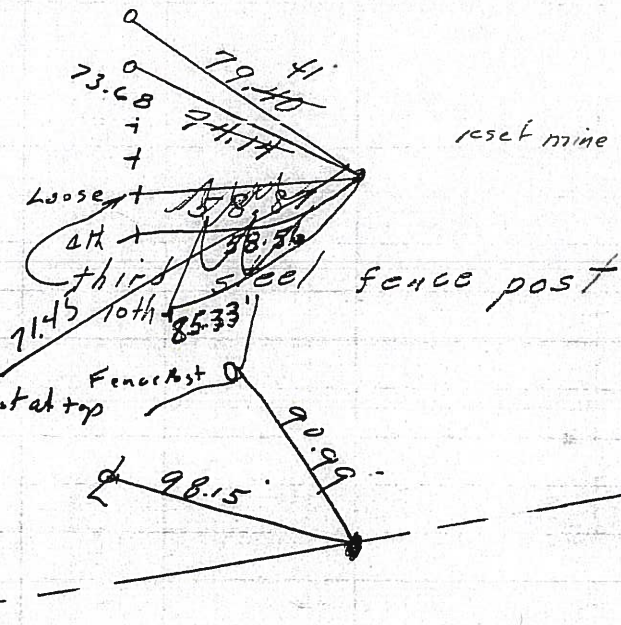 41'
79.40
73.68
74.14
reset mine
Loose
58.87
4th
58.56
third steel fence post
71.45
10th
85.33'
Fence Post
at top
90.99
98.15'